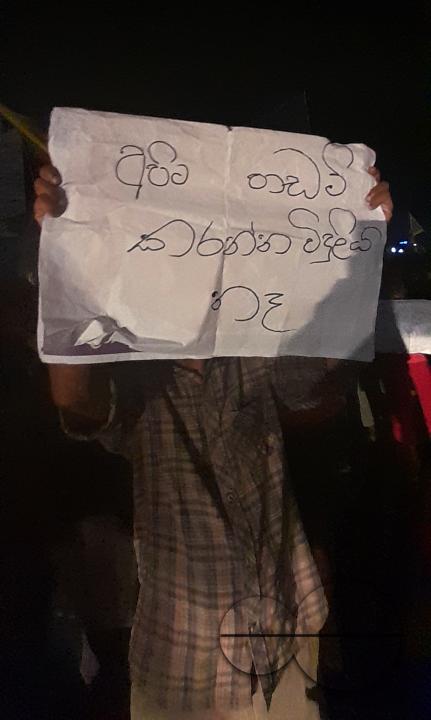 අපිට පාඩම්
කරන්න විදුලිය
නෑ